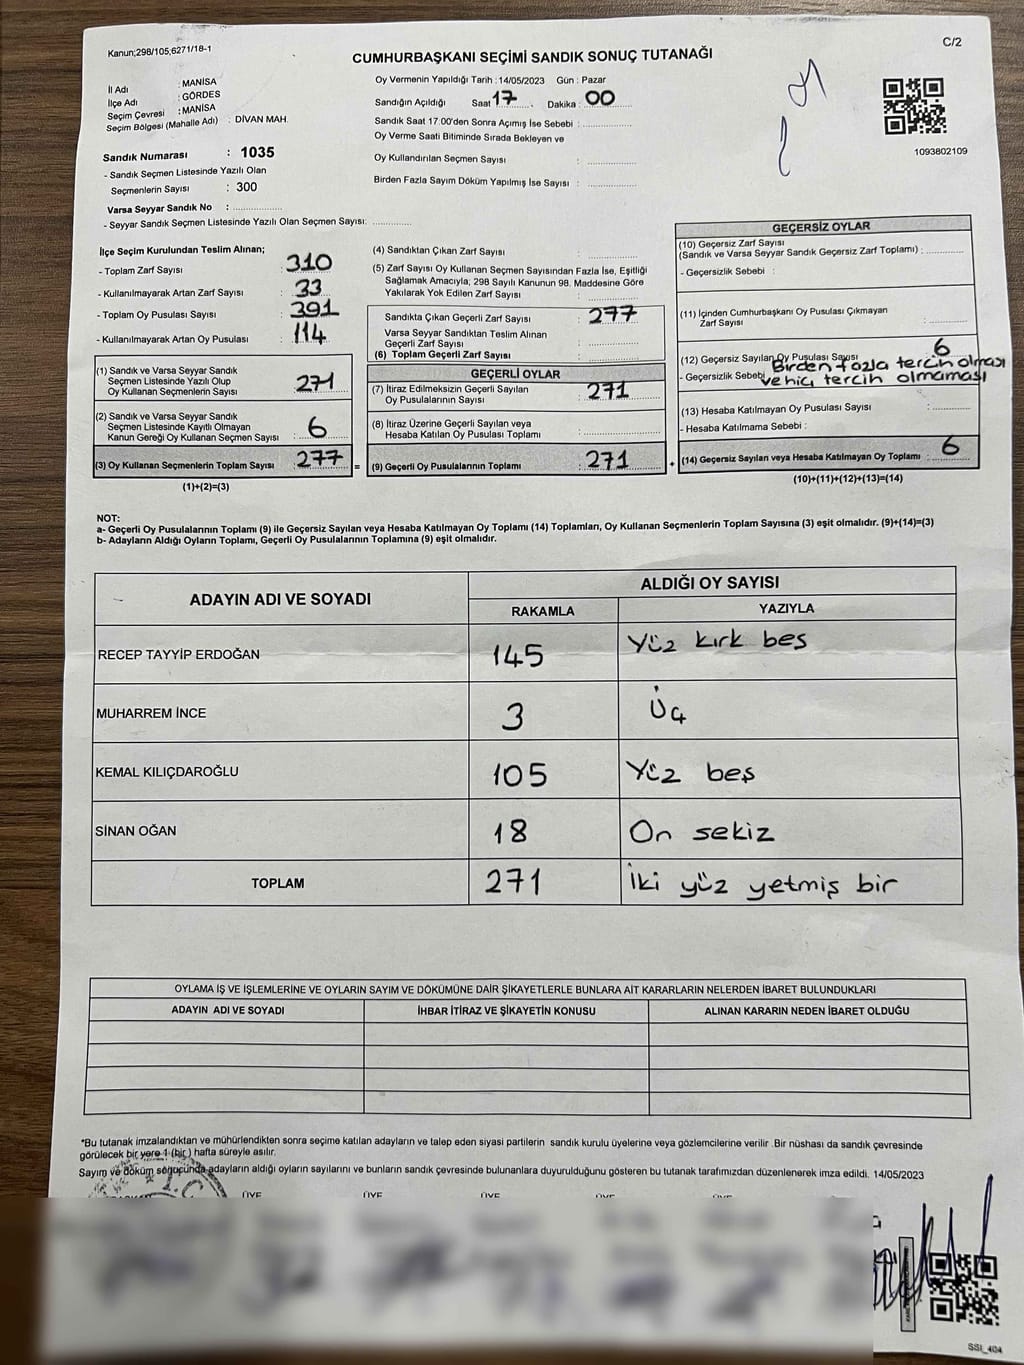 Kanun;298/105,6271/18-1
C/2
CUMHURBAŞKANI SEÇİMİ SANDIK SONUÇ TUTANAĞI
İl Adı : MANİSA
İlçe Adı : GÖRDES
Seçim Çevresi : MANİSA
Seçim Bölgesi (Mahalle Adı) : DİVAN MAH.
Sandık Numarası : 1035
- Sandık Seçmen Listesinde Yazılı Olan
Seçmenlerin Sayısı : 300
Varsa Seyyar Sandık No : ..............
- Seyyar Sandık Seçmen Listesinde Yazılı Olan Seçmen Sayısı: ............
Oy Vermenin Yapıldığı Tarih : 14/05/2023 Gün : Pazar
Sandığın Açıldığı Saat 17 Dakika : 00
Sandık Saat 17:00'den Sonra Açımış İse Sebebi : ..............
Oy Verme Saati Bitiminde Sırada Bekleyen ve
Oy Kullandırılan Seçmen Sayısı : ..............
Birden Fazla Sayım Döküm Yapılmış İse Sayısı : ..............
1093802109
İlçe Seçim Kurulundan Teslim Alınan;
- Toplam Zarf Sayısı : 310
- Kullanılmayarak Artan Zarf Sayısı : 33
- Toplam Oy Pusulası Sayısı : 391
- Kullanılmayarak Artan Oy Pusulası : 114
(1) Sandık ve Varsa Seyyar Sandık
Seçmen Listesinde Yazılı Olup
Oy Kullanan Seçmenlerin Sayısı : 271
(2) Sandık ve Varsa Seyyar Sandık
Seçmen Listesinde Kayıtlı Olmayan
Kanun Gereği Oy Kullanan Seçmen Sayısı : 6
(3) Oy Kullanan Seçmenlerin Toplam Sayısı : 277
(1)+(2)=(3)
(4) Sandıktan Çıkan Zarf Sayısı : ..............
(5) Zarf Sayısı Oy Kullanan Seçmen Sayısından Fazla İse, Eşitliği
Sağlamak Amacıyla; 298 Sayılı Kanunun 98. Maddesine Göre
Yakılarak Yok Edilen Zarf Sayısı : ..............
Sandıkta Çıkan Geçerli Zarf Sayısı : 277
Varsa Seyyar Sandıktan Teslim Alınan
Geçerli Zarf Sayısı : ..............
(6) Toplam Geçerli Zarf Sayısı : ..............
GEÇERLİ OYLAR
(7) İtiraz Edilmeksizin Geçerli Sayılan
Oy Pusulalarının Sayısı : 271
(8) İtiraz Üzerine Geçerli Sayılan veya
Hesaba Katılan Oy Pusulası Toplamı : ..............
= (9) Geçerli Oy Pusulalarının Toplamı : 271 +
GEÇERSİZ OYLAR
(10) Geçersiz Zarf Sayısı
(Sandık ve Varsa Seyyar Sandık Geçersiz Zarf Toplamı) : ..........
- Geçersizlik Sebebi :
(11) İçinden Cumhurbaşkanı Oy Pusulası Çıkmayan
Zarf Sayısı : ..........
(12) Geçersiz Sayılan Oy Pusulası Sayısı 6
- Geçersizlik Sebebi Birden fazla tercih olması
ve hiç tercih olmaması
(13) Hesaba Katılmayan Oy Pusulası Sayısı : ..........
- Hesaba Katılmama Sebebi :
(14) Geçersiz Sayılan veya Hesaba Katılmayan Oy Toplamı : 6
(10)+(11)+(12)+(13)=(14)
NOT:
a- Geçerli Oy Pusulalarının Toplamı (9) ile Geçersiz Sayılan veya Hesaba Katılmayan Oy Toplamı (14) Toplamları, Oy Kullanan Seçmenlerin Toplam Sayısına (3) eşit olmalıdır. (9)+(14)=(3)
b- Adayların Aldığı Oyların Toplamı, Geçerli Oy Pusulalarının Toplamına (9) eşit olmalıdır.
ADAYIN ADI VE SOYADI ALDIĞI OY SAYISI
RAKAMLA YAZIYLA
RECEP TAYYİP ERDOĞAN 145 Yüz kırk beş
MUHARREM İNCE 3 Üç
KEMAL KILIÇDAROĞLU 105 Yüz beş
SİNAN OĞAN 18 On sekiz
TOPLAM 271 İki yüz yetmiş bir
OYLAMA İŞ VE İŞLEMLERİNE VE OYLARIN SAYIM VE DÖKÜMÜNE DAİR ŞİKAYETLERLE BUNLARA AİT KARARLARIN NELERDEN İBARET BULUNDUKLARI
ADAYIN ADI VE SOYADI İHBAR İTİRAZ VE ŞİKAYETİN KONUSU ALINAN KARARIN NEDEN İBARET OLDUĞU
*Bu tutanak imzalandıktan ve mühürlendikten sonra seçime katılan adayların ve talep eden siyasi partilerin sandık kurulu üyelerine veya gözlemcilerine verilir .Bir nüshası da sandık çevresinde
görülecek bir yere 1 (bir ) hafta süreyle asılır.
Sayım ve döküm sonucunda adayların aldığı oyların sayılarını ve bunların sandık çevresinde bulunanlara duyurulduğunu gösteren bu tutanak tarafımızdan düzenlenerek imza edildi. 14/05/2023
T.C.
ÜYE ÜYE ÜYE ÜYE ÜYE
SSI_404